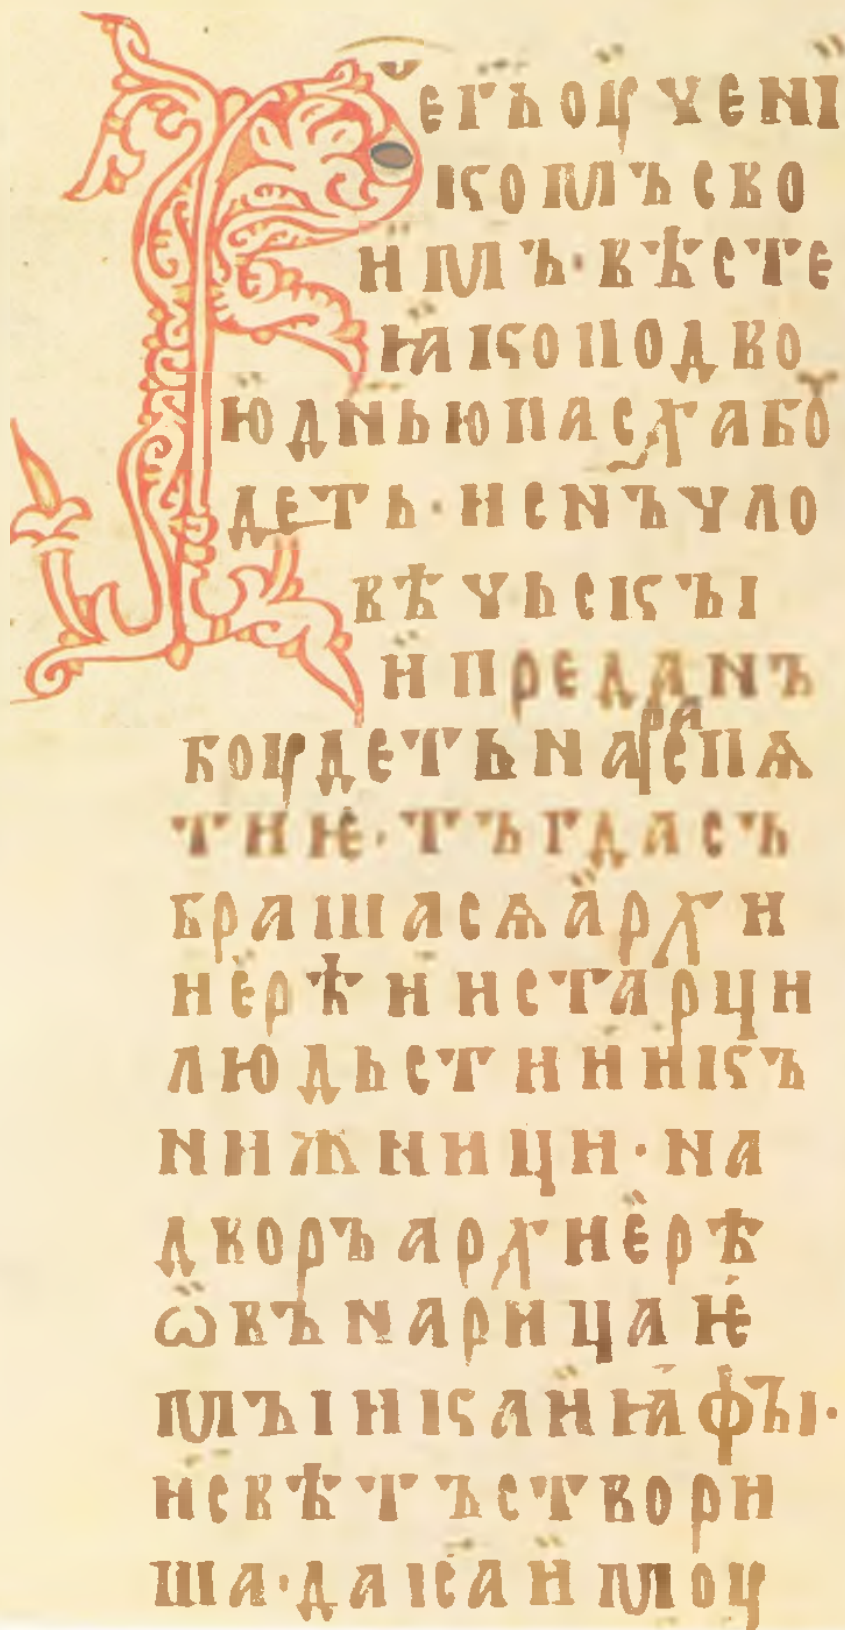 Рⷱ҇егьоученı
комъсво
имъ·вѣсте
ꙗкоподво
юдньюпасхабоу
деть·иснъчло
вѣчьскъı
ипреданъ
боудетьнараспѧ
тиѥ·тъгдасъ
брашасѧархи
иерѣиистарци
людьстииикъ
нижници·на
дворъархиерѣ
ѡвънарицаѥ
мъıикаиꙗфъı·
исвѣтъствори
ша·даıсаимоу